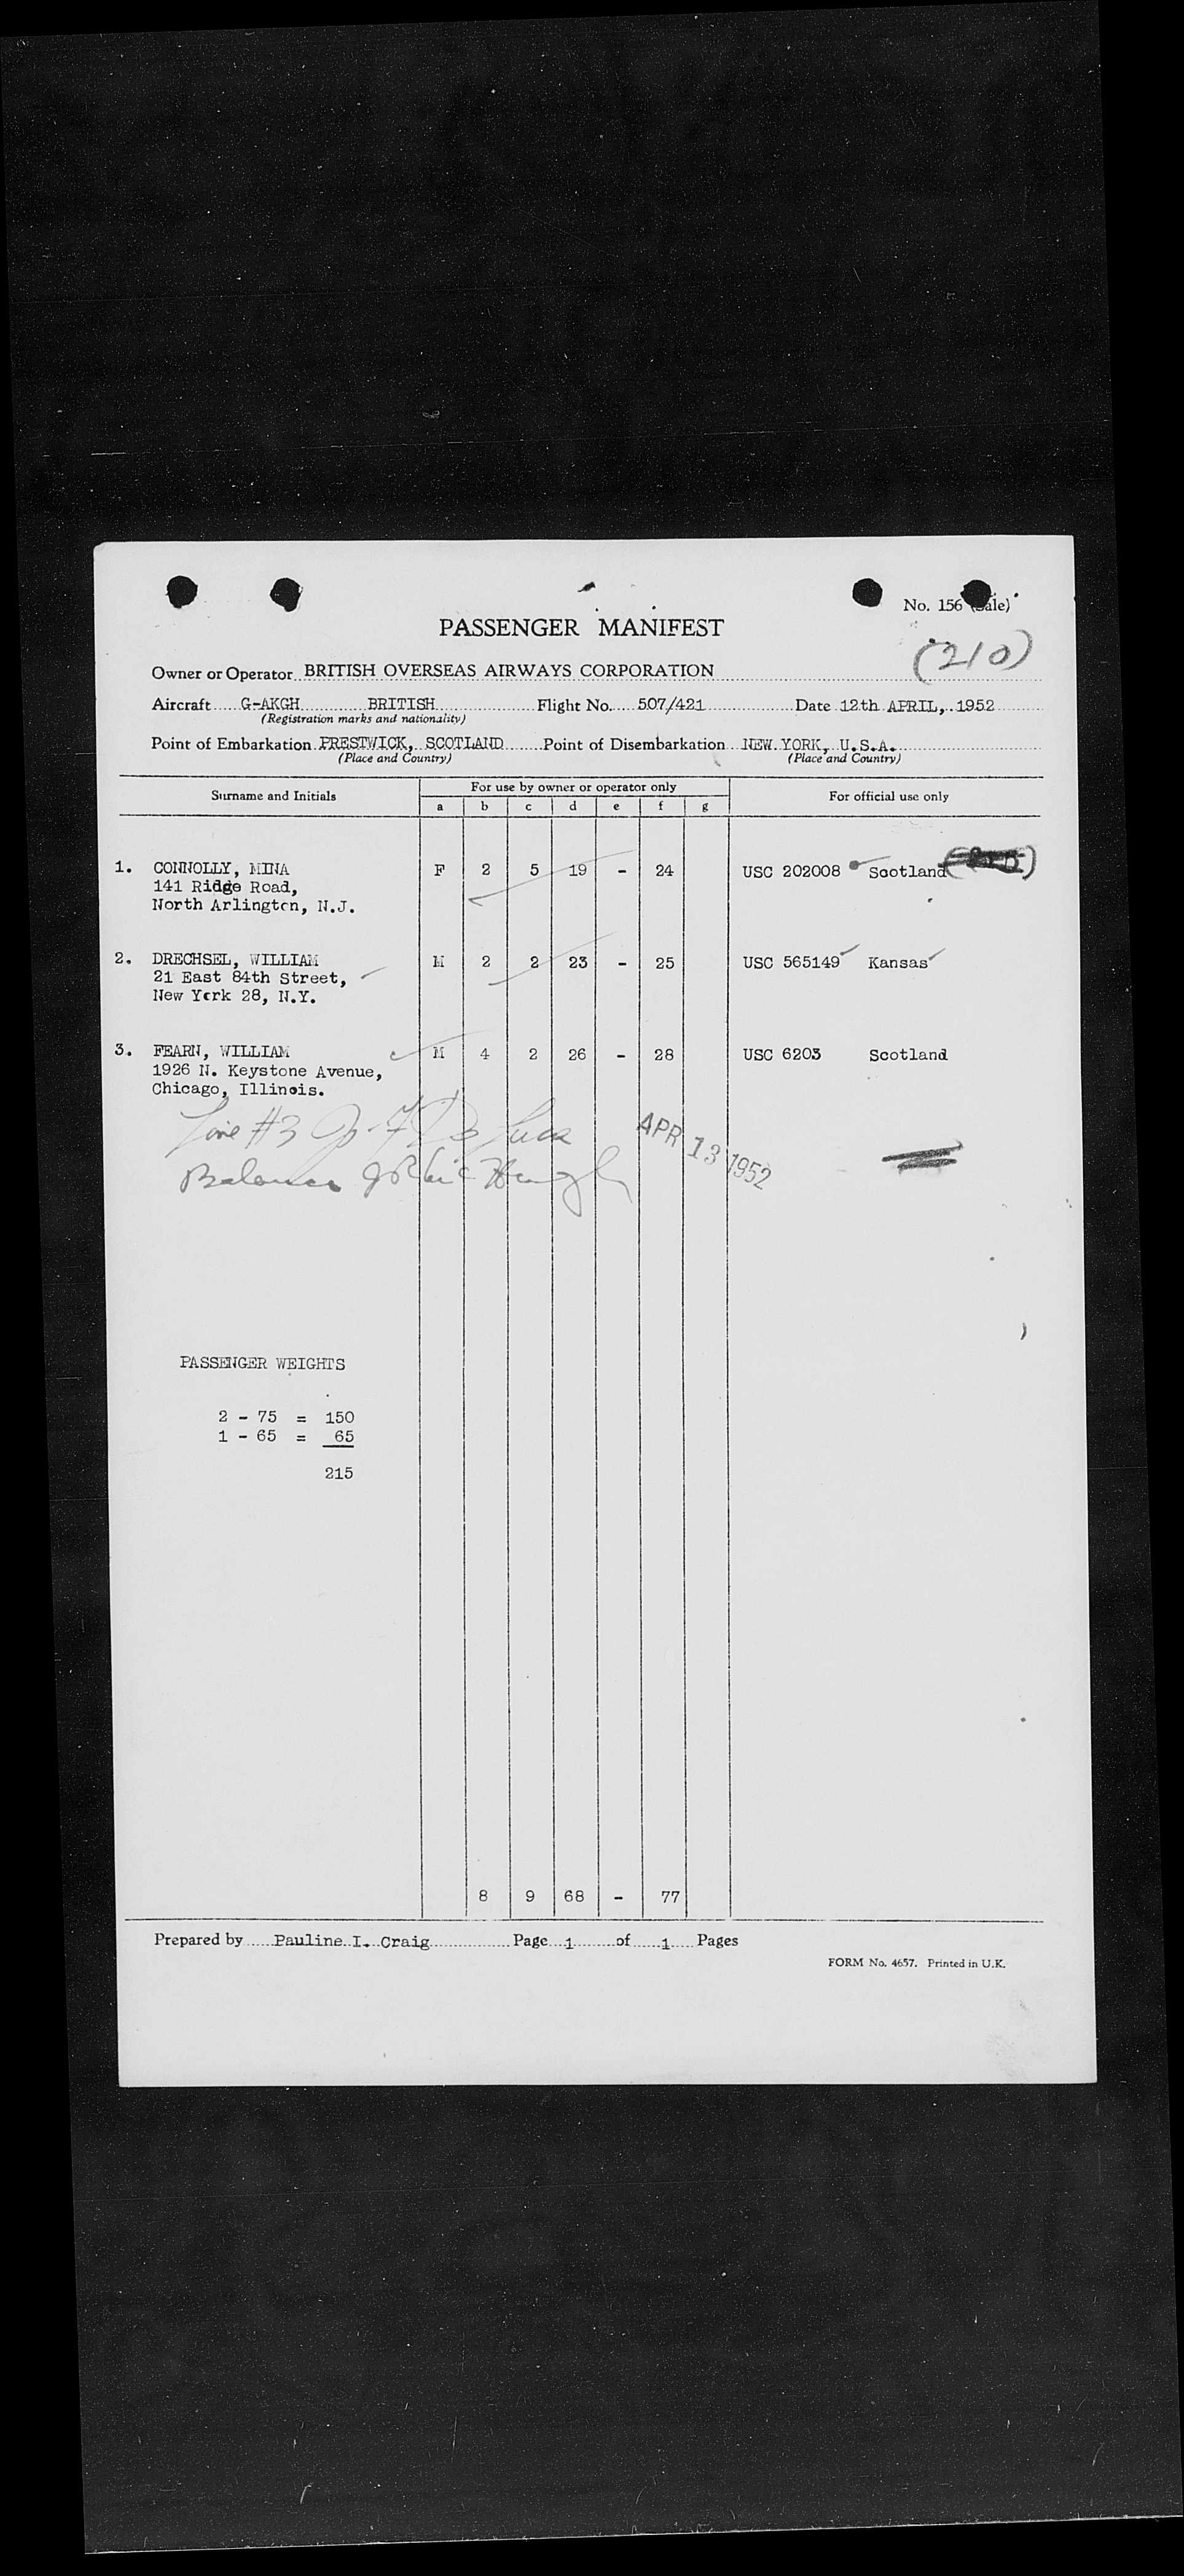 No. 156 (Sale)
(210)
PASSENGER MANIFEST
Owner or Operator BRITISH OVERSEAS AIRWAYS CORPORATION
Aircraft G-AKGH BRITISH Flight No. 507/421 Date 12th APRIL, 1952
(Registration marks and nationality)
Point of Embarkation PRESTWICK, SCOTLAND Point of Disembarkation NEW YORK, U.S.A.
(Place and Country) (Place and Country)
Surname and Initials For use by owner or operator only For official use only
a b c d e f g
1. CONNOLLY, MINA F 2 5 19 - 24 USC 202008 Scotland
141 Ridge Road,
North Arlington, N.J.
2. DRECHSEL, WILLIAM M 2 2 23 - 25 USC 565149 Kansas
21 East 84th Street,
New York 28, N.Y.
3. FEARN, WILLIAM M 4 2 26 - 28 USC 6203 Scotland
1926 N. Keystone Avenue,
Chicago, Illinois.
Line #3
APR 13 1952
Balance
PASSENGER WEIGHTS
2 - 75 = 150
1 - 65 = 65
215
8 9 68 - 77
Prepared by Pauline I. Craig Page 1 of 1 Pages
FORM No. 4657. Printed in U.K.